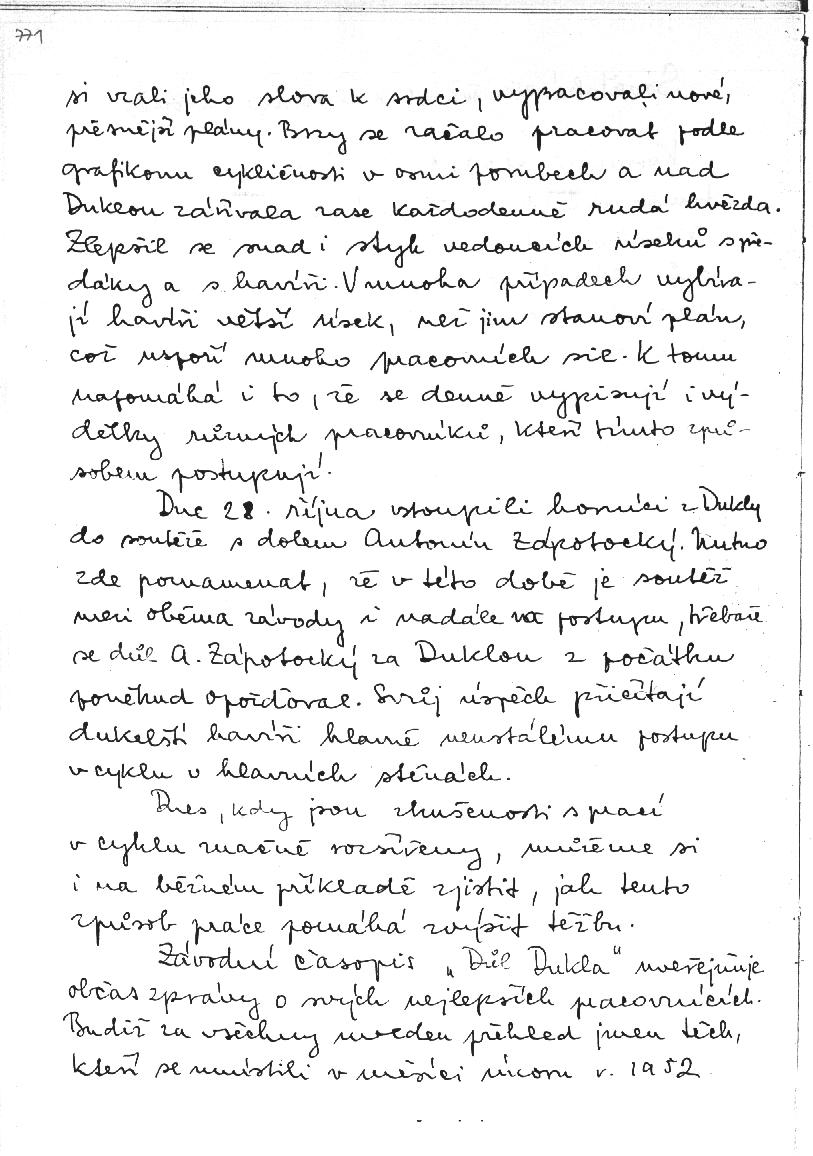 771
si vzali jeho slova k srdci, vypracovali nové,
přesnější plány. Brzy se začalo pracovat podle
grafikonu cykličnosti v osmi porubech a nad
Duklou zářívala zase každodenně rudá hvězda.
Zlepšil se snad i styk vedoucích úseků s pře-
dáky a s havíři. V mnoha případech vybíra-
jí havíři větší úsek, než jim stanoví plán,
což uspoří mnoho pracovních sil. K tomu
napomáhá i to, že se denně vypisují i vý-
dělky různých pracovníků, kteří tímto způ-
sobem postupují.
Dne 28. října vstoupili horníci z Dukly
do soutěže s dolem Antonín Zápotocký. Nutno
zde poznamenat, že v této době je soutěž
mezi oběma závody i nadále na postupu, třebaže
se důl A. Zápotocký za Duklou z počátku
poněkud opožďoval. Svůj úspěch přičítají
dukelští havíři hlavně neustálému postupu
v cyklu v hlavních stěnách.
Dnes, kdy jsou zkušenosti s prací
v cyklu značně rozšířeny, můžeme si
i na běžném příkladě zjistit, jak tento
způsob práce pomáhá zvýšit těžbu.
Závodní časopis „Důl Dukla" uveřejňuje
občas zprávy o svých nejlepších pracovnících.
Budiž za všechny uveden přehled jmen těch,
kteří se umístili v měsíci únoru r. 1952